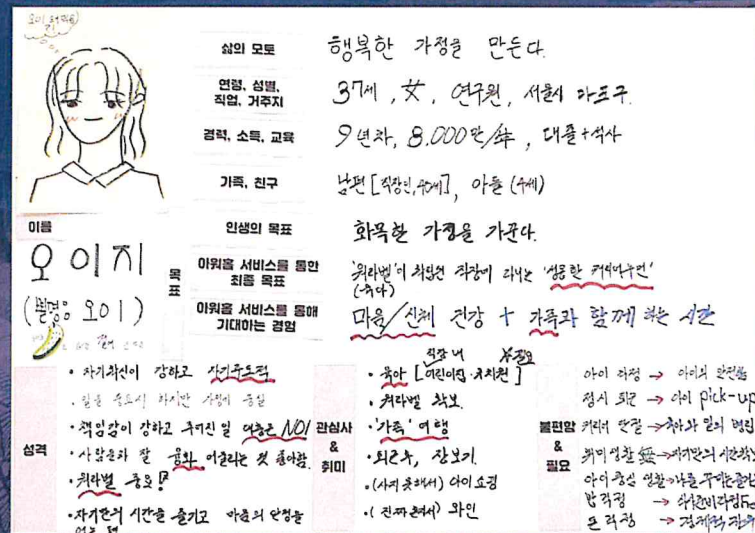 오이
삶의 모토
행복한 가정을 만든다.
연령, 성별,
직업, 거주지
37세, 女, 연구원, 서울시 마포구.
경력, 소득, 교육
9년차, 8.000만/年, 대졸+석사
가족, 친구
남편 [직장인, 40세], 아들 (4세)
이름
오이지
(별명은 오이)
목표
인생의 목표
화목한 가정을 가꾼다.
아워홈 서비스를 통한
최종 목표
'워라밸'이 직장에 다니는 '성공한 커리어우먼'
아워홈 서비스를 통해
기대하는 경험
마음/신체 건강 + 가족과 함께 하는 시간
성격
• 자기확신이 강하고 자기주도적
• 일을 중요시 하지만 가정이 중심
• 책임감이 강하고 주어진 일 대충은 NO!
• 사람들과 잘 융화 어울리는 것 좋아함.
• 워라밸 중요!
• 자기만의 시간을 즐기고 마음의 안정을
관심사
&
취미
직장 내 필요
• 육아 [어린이집·유치원]
• 워라밸 확보.
• '가족' 여행
• 외근후, 장보기.
• (사지 못해서) 아이쇼핑
• 와인
불편함
&
필요
아이 걱정 → 아이의 안전
정시 퇴근 → 아이 pick-up
커리어 단절 → 육아와 일의 병립
취미생활 無 →
아이중심 생활 →
밥걱정 →
돈걱정 →